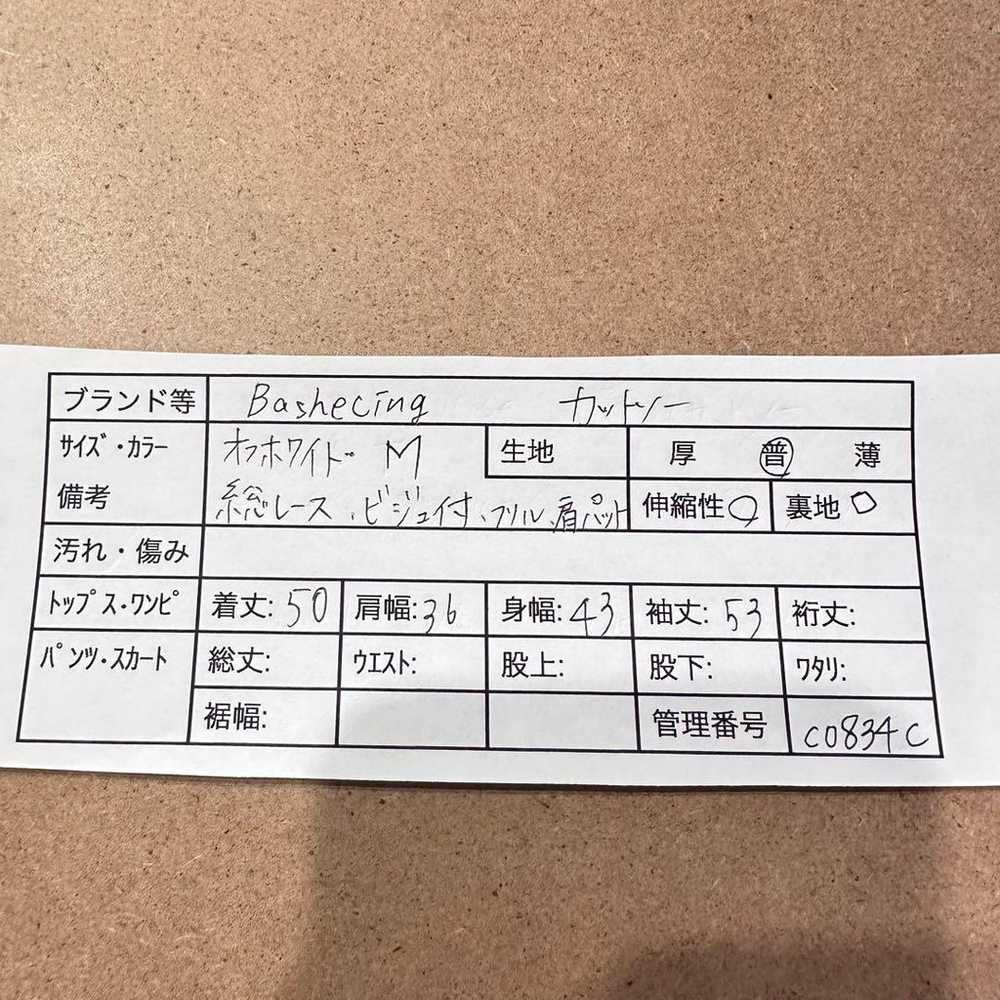 ブランド等 Bashecing カットソー
サイズ・カラー オフホワイト M 生地 厚 普 薄
備考 総レース、ビジュ付、フリル、肩パット 伸縮性○ 裏地○
汚れ・傷み
トップス・ワンピ 着丈:50 肩幅:36 身幅:43 袖丈:53 裄丈:
パンツ・スカート 総丈: ウエスト: 股上: 股下: ワタリ:
裾幅: 管理番号 C0834C